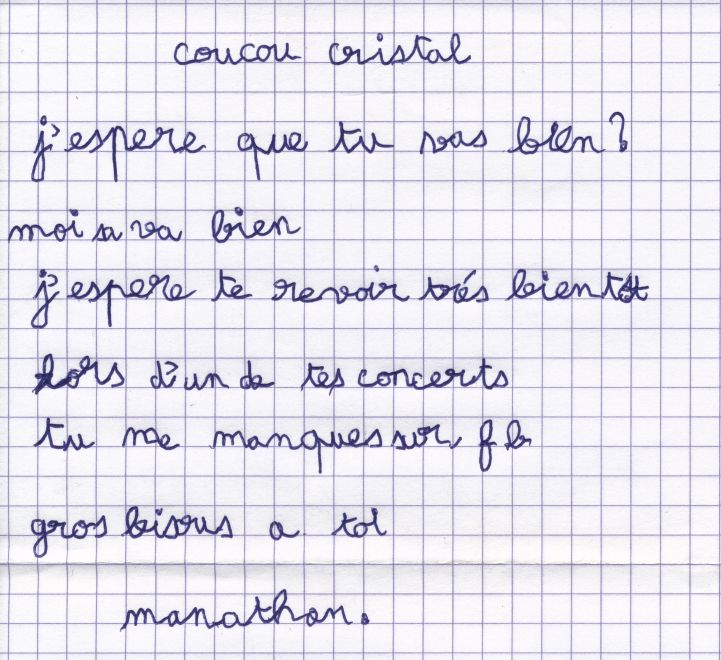 coucou cristal
j'espere que tu vas bien?
moi sa va bien
j'espere te revoir trés bientôt
lors d'un de tes concerts
tu me manques sur fb
gros bisous a toi
manathon.